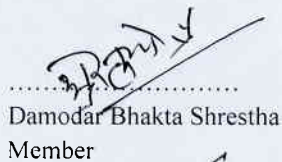 ................................
Damodar Bhakta Shrestha
Member